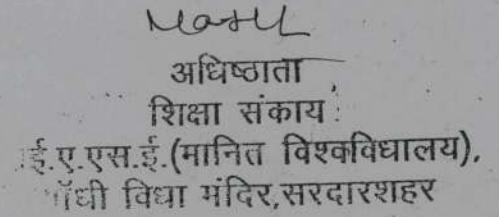 अधिष्ठाता
शिक्षा संकाय
ई.ए.एस.ई.(मानित विश्वविधालय),
गाँधी विधा मंदिर,सरदारशहर